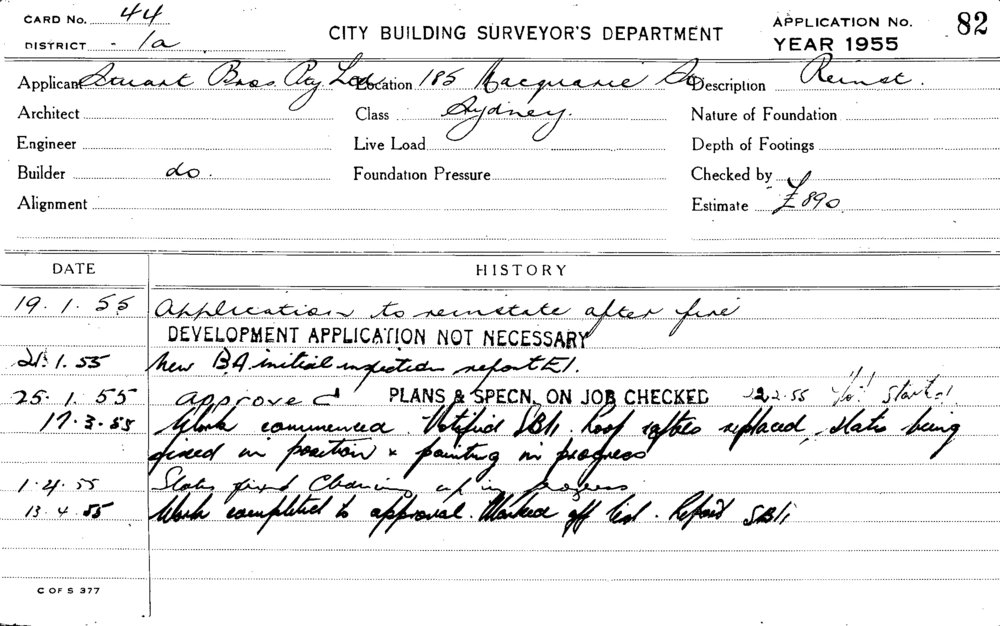 CARD No. 44
DISTRICT - 1a
CITY BUILDING SURVEYOR'S DEPARTMENT
APPLICATION No. 82
YEAR 1955
Applicant Stuart Bros Pty Ltd Location 185 Macquarie St Description Reinst.
Architect Class Sydney. Nature of Foundation
Engineer Live Load Depth of Footings
Builder do. Foundation Pressure Checked by
Alignment Estimate £890
DATE HISTORY
19.1.55 Application to reinstate after fire
DEVELOPMENT APPLICATION NOT NECESSARY
21.1.55 New B.A initial inspection report E1.
25.1.55 approved PLANS & SPECN. ON JOB CHECKED 22.2.55 Not started
17.3.55 Work commenced. Notified SB11. Roof rafters replaced, slates being
fixed in position & painting in progress
1.4.55 Slates fixed Cleaning up in progress
13.4.55 Work completed to approval. Marked off list. Report SB11
C OF S 377